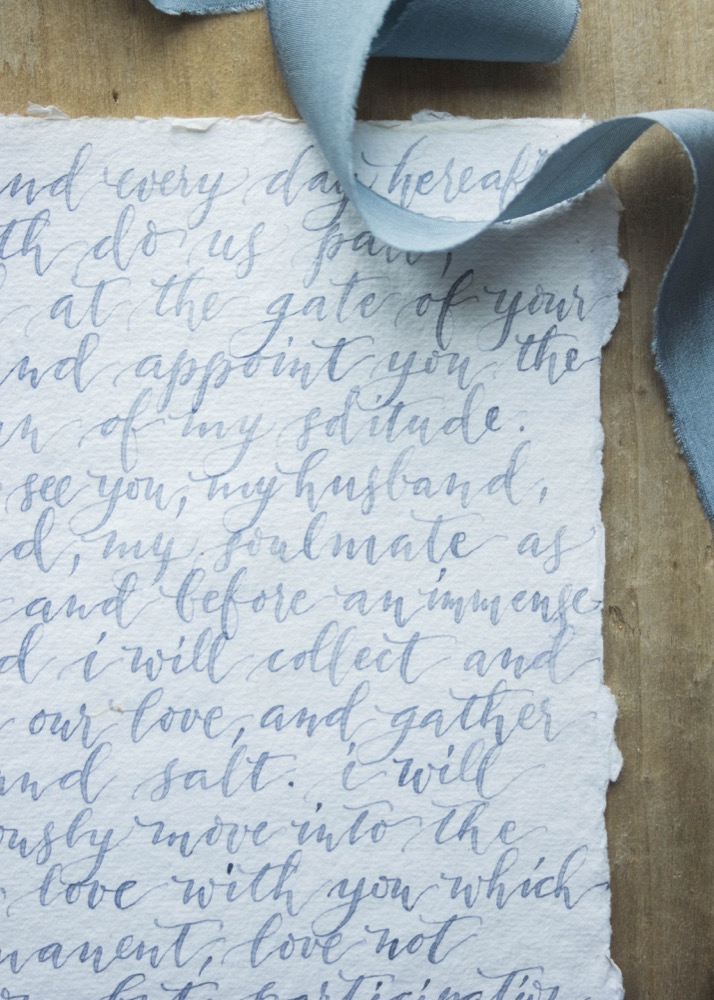 nd every day hereaf
th do us part,
at the gate of your
nd appoint you the
n of my solitude.
see you, my husband,
d, my soulmate as
and before an immense
d i will collect and
our love, and gather
and salt. i will
ously move into the
love with you which
manent, love not
but participation